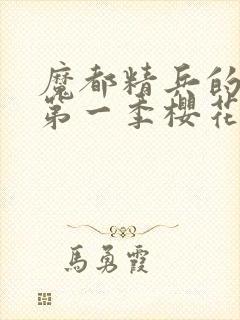 魔都精兵的
第一季樱花
馬勇霞